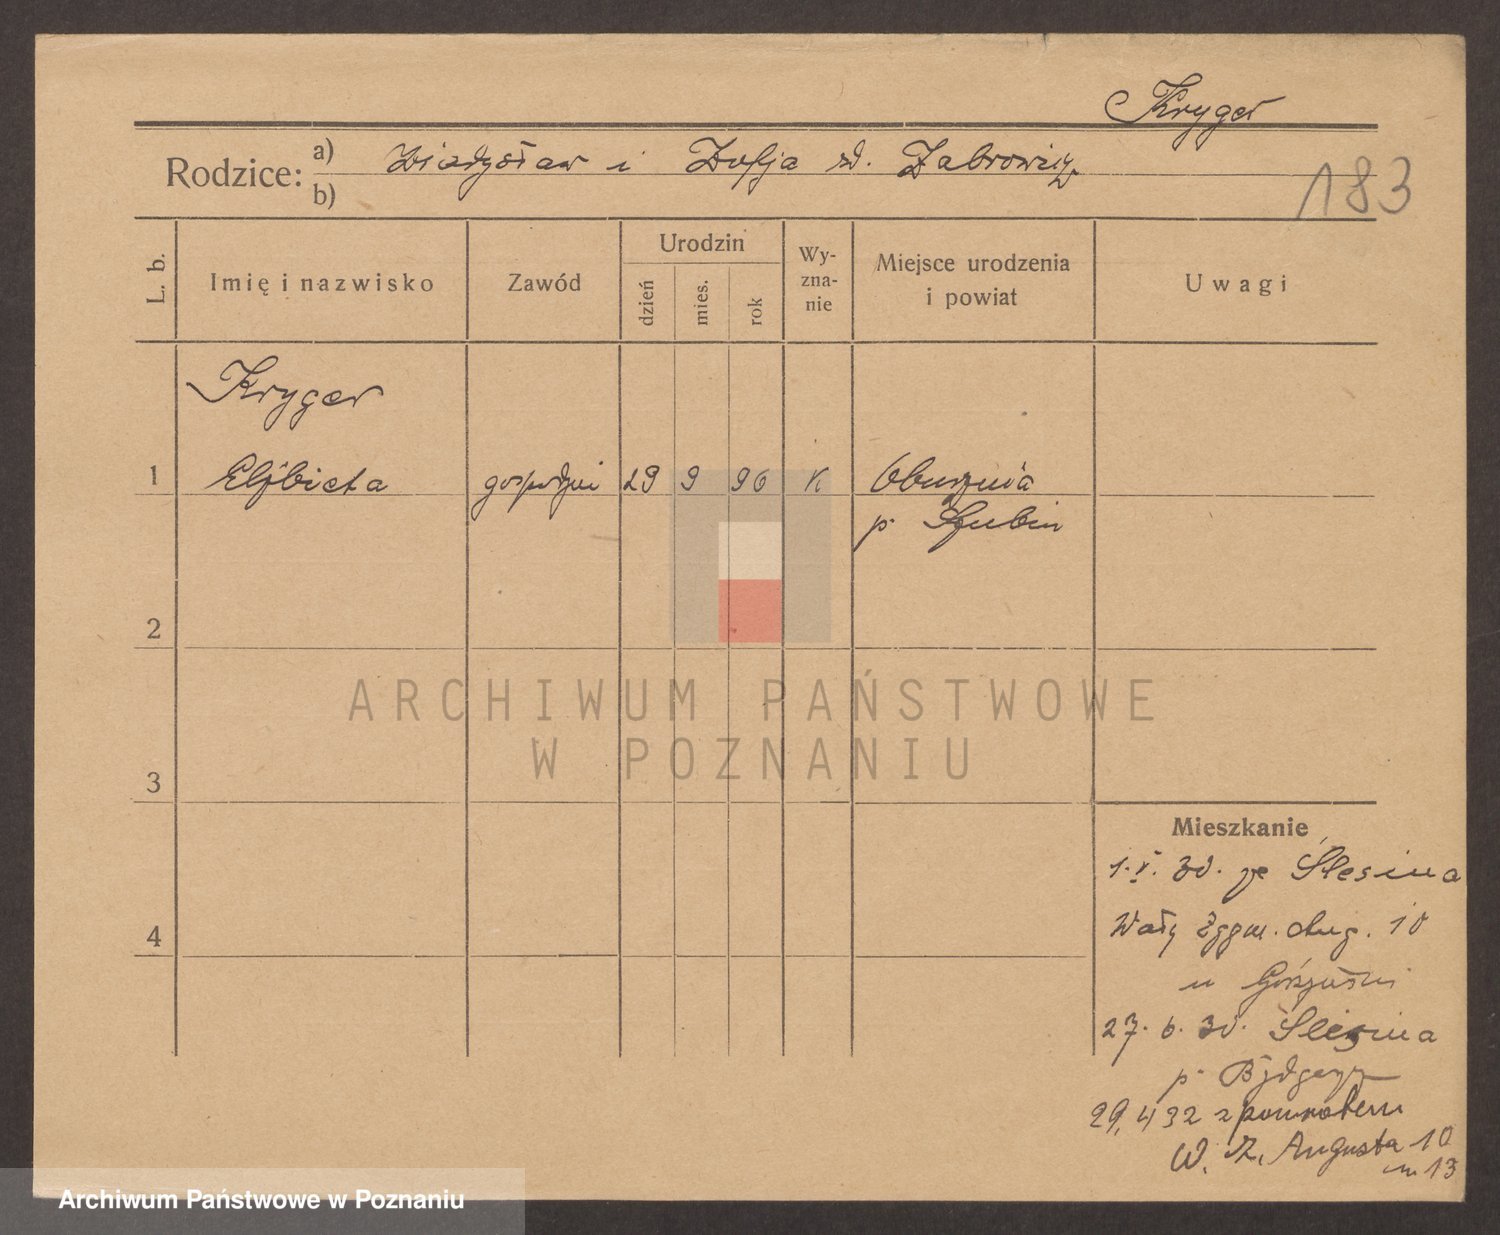 Kryger
Rodzice: a) Władysław i Zofja
b)
183
L. b.
Imię i nazwisko
Zawód
Urodzin
dzień
mies.
rok
Wy-
zna-
nie
Miejsce urodzenia
i powiat
Uwagi
Kryger
1 Elżbieta 29 9 96 K
p. Szubin
2
3
4
Mieszkanie
1. V. 30. ze Slesina
Wały Zygm. Aug. 10
u
27. 6. 30. Slesina
p. Bydgoszcz
29.4 32 z powrotem
W. Z. Augusta 10
m 13
ARCHIWUM PAŃSTWOWE
W POZNANIU
Archiwum Państwowe w Poznaniu